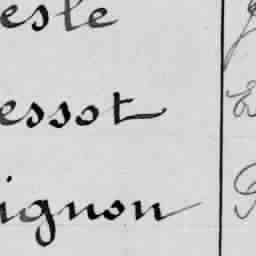 esle
essot
ignon